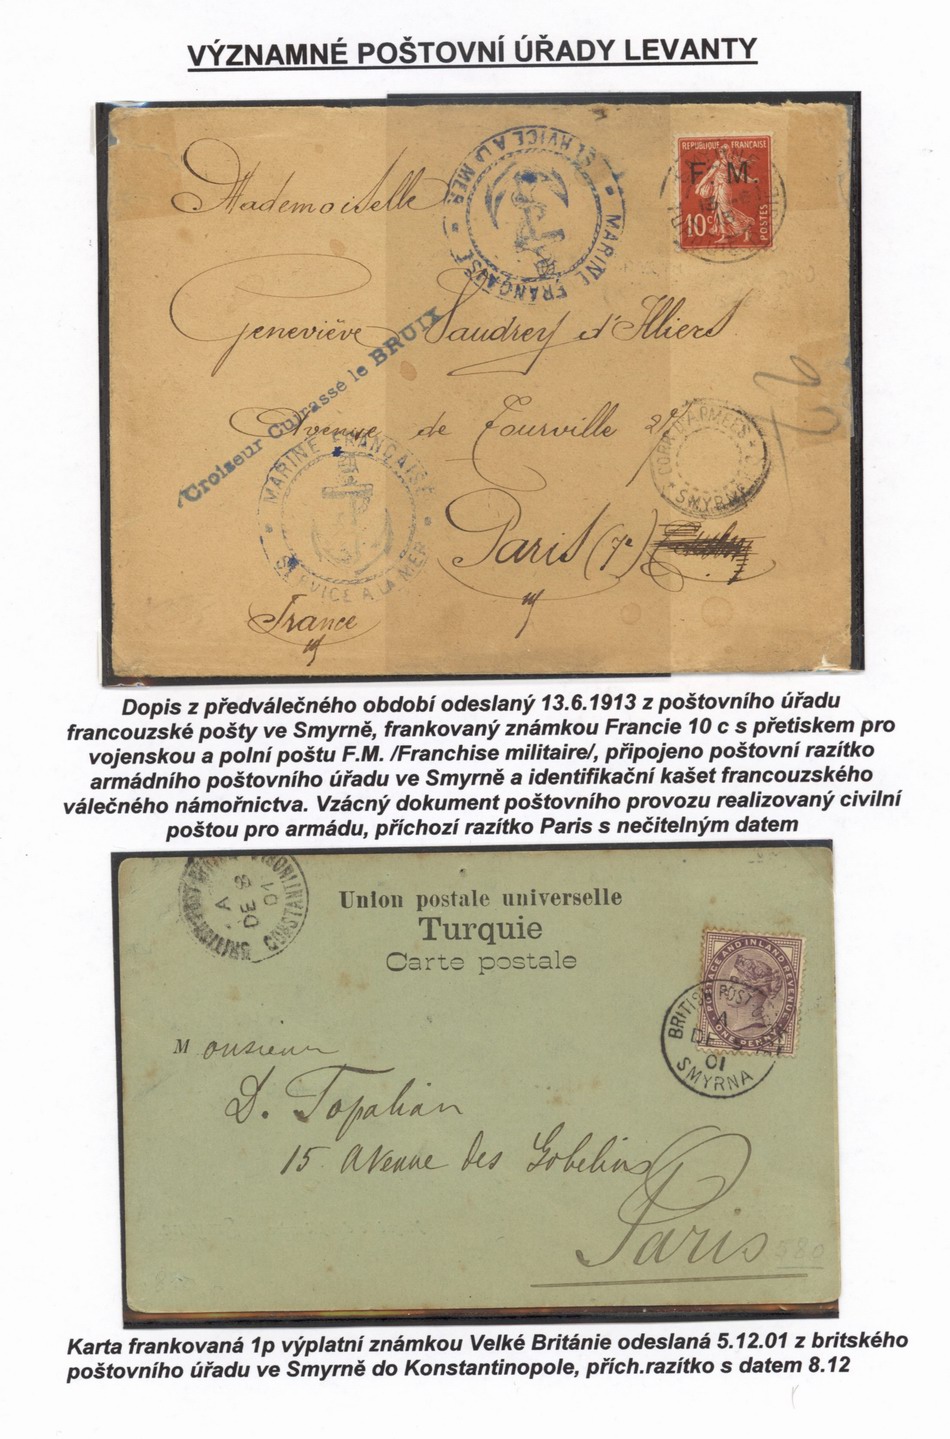 VÝZNAMNÉ POŠTOVNÍ ÚŘADY LEVANTY
MARINE FRANÇAISE
SERVICE A LA MER
REPUBLIQUE FRANÇAISE
F. M.
10c
POSTES
Mademoiselle
Geneviève Vaudrey d'Illiers
Croiseur Cuirassé le BRUIX
Avenue de Tourville 2
CORPS D'ARMEES
SMYRNE
MARINE FRANÇAISE
SERVICE A LA MER
Paris (7e)
France
Dopis z předválečného období odeslaný 13.6.1913 z poštovního úřadu
francouzské pošty ve Smyrně, frankovaný známkou Francie 10 c s přetiskem pro
vojenskou a polní poštu F.M. /Franchise militaire/, připojeno poštovní razítko
armádního poštovního úřadu ve Smyrně a identifikační kašet francouzského
válečného námořnictva. Vzácný dokument poštovního provozu realizovaný civilní
poštou pro armádu, příchozí razítko Paris s nečitelným datem
BRITISH POST OFFICE CONSTANTINOPLE
A
DE 8
01
Union postale universelle
Turquie
Carte postale
POSTAGE AND INLAND REVENUE
ONE PENNY
BRITISH POST OFFICE
A
DE 5
01
SMYRNA
Monsieur
D. Topalian
15 Avenue des Gobelins
Paris
580
Karta frankovaná 1p výplatní známkou Velké Británie odeslaná 5.12.01 z britského
poštovního úřadu ve Smyrně do Konstantinopole, přích.razítko s datem 8.12